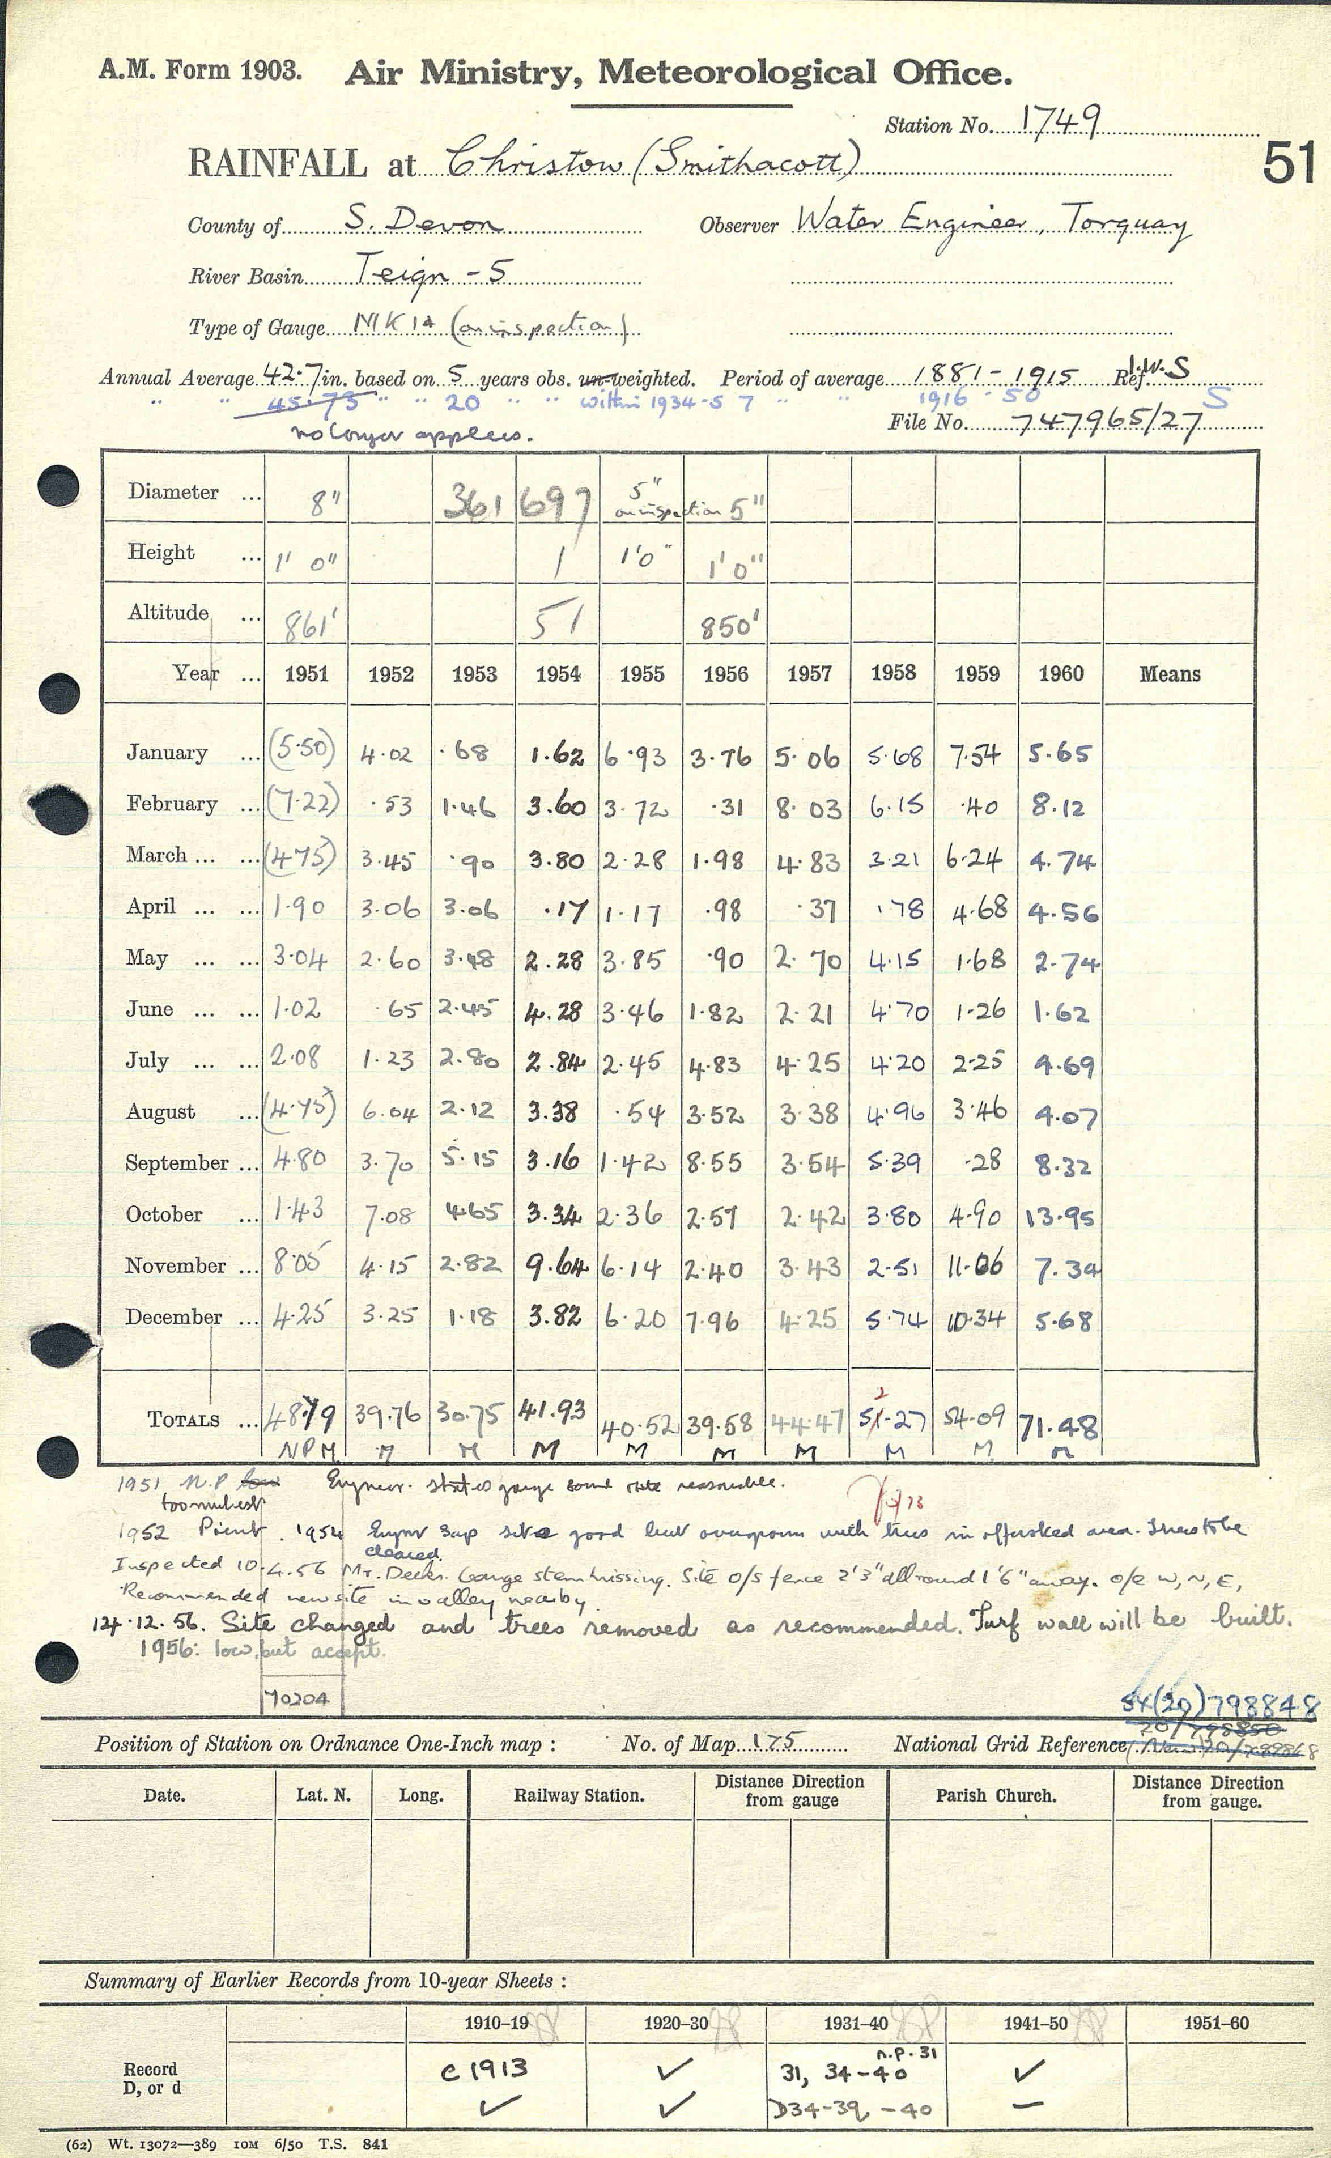 A.M. Form 1903. Air Ministry, Meteorological Office.
Station No. 1749
51
RAINFALL at Christow (Smithacott)
County of S. Devon Observer Water Engineer, Torquay
River Basin Teign - 5
Type of Gauge MK 1A (on inspection)
Annual Average 42.7 in. based on 5 years obs. un-weighted. Period of average 1881 - 1915 Ref. I.W.S
" " 45.73 " " 20 " " within 1934-57 " " 1916 - 50 S
no longer applies. File No. 747965/27
Diameter ... 8" 361 697 5" on inspection 5"
Height ... 1' 0" 1 1'0" 1'0"
Altitude ... 861' 51 850'
Year ... 1951 1952 1953 1954 1955 1956 1957 1958 1959 1960 Means
January ... (5.50) 4.02 .68 1.62 6.93 3.76 5.06 5.68 7.54 5.65
February ... (7.22) .53 1.46 3.60 3.72 .31 8.03 6.15 .40 8.12
March ... ... (4.75) 3.45 .90 3.80 2.28 1.98 4.83 3.21 6.24 4.74
April ... ... 1.90 3.06 3.06 .17 1.17 .98 .37 .78 4.68 4.56
May ... ... 3.04 2.60 3.48 2.28 3.85 .90 2.70 4.15 1.68 2.74
June ... ... 1.02 .65 2.45 4.28 3.46 1.82 2.21 4.70 1.26 1.62
July ... ... 2.08 1.23 2.80 2.84 2.45 4.83 4.25 4.20 2.25 4.69
August ... (4.75) 6.04 2.12 3.38 .54 3.52 3.38 4.96 3.46 4.07
September ... 4.80 3.70 5.15 3.16 1.42 8.55 3.54 5.39 .28 8.32
October ... 1.43 7.08 4.65 3.34 2.36 2.57 2.42 3.80 4.90 13.95
November ... 8.05 4.15 2.82 9.64 6.14 2.40 3.43 2.51 11.06 7.34
December ... 4.25 3.25 1.18 3.82 6.20 7.96 4.25 5.74 10.34 5.68
2
TOTALS ... 48.79 39.76 30.75 41.93 40.52 39.58 44.47 51.27 54.09 71.48
NPM M M M M M M M M M
1951 N.P low Engineer states gauge sound rate reasonable.
too modest
1952 1954 Engnr says site good but overgrown with trees in afforested area. Trees to be
cleared.
Inspected 10.4.56 Mr. Gauge stem missing. Site o/s fence 2'3" all round 1'6" away. o/e W, N, E,
Recommended new site in valley nearby.
14.12.56. Site changed and trees removed as recommended. Turf wall will be built.
1956: low, but accept.
70204
SX(20)798848
20/798850
Position of Station on Ordnance One-Inch map : No. of Map 175 National Grid Reference
Date. Lat. N. Long. Railway Station. Distance Direction from gauge Parish Church. Distance Direction from gauge.
Summary of Earlier Records from 10-year Sheets :
1910–19 1920–30 1931–40 1941–50 1951–60
n.p. 31
Record c 1913 ✓ 31, 34-40 ✓
D, or d ✓ ✓ D34-39, -40 –
(62) Wt. 13072—389 10M 6/50 T.S. 841